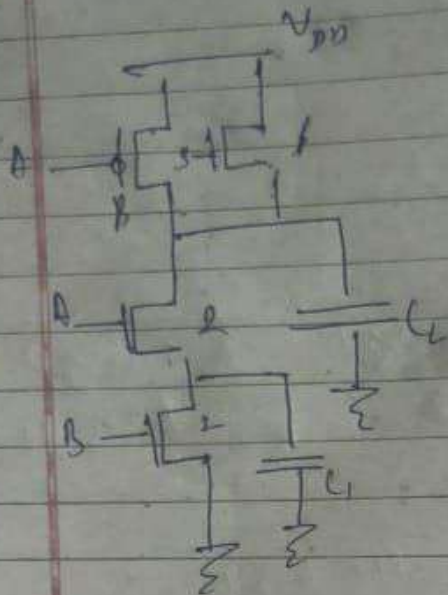 V_DD
A
B
A
2
C_L
B
2
C_1